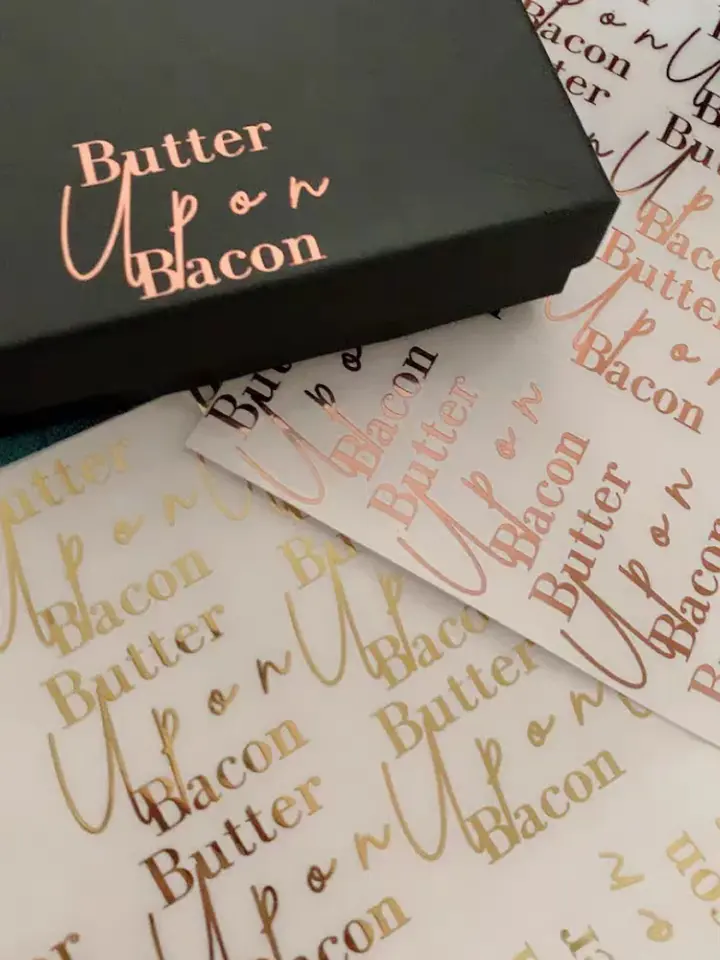 Butter
Upon
Bacon
Bacon
Butter
Upon
Bacon
Upon
Bacon
Butter
Upon
Bacon
Butter
Upon
Bacon
Butter
Upon
Bacon
Butter
Upon
Bacon
Butter
Upon
Bacon
Butter
Upon